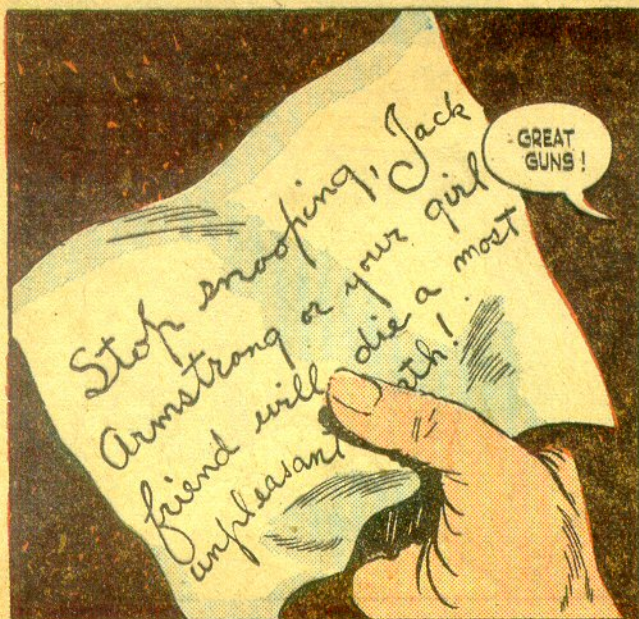 Stop snooping, Jack
Armstrong or your girl
friend will die a most
unpleasant ath!
GREAT
GUNS!